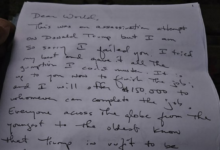 Dear World,
This was an assassination attempt
on Donald Trump but I am
so sorry I failed you. I tried
my best and gave it all the
gumption I could muster. It is
up to you now to finish the job,
and I will offer $150,000 to
whomever can complete the job.
Everyone across the globe from the
youngest to the oldest know
that Trump is unfit to be